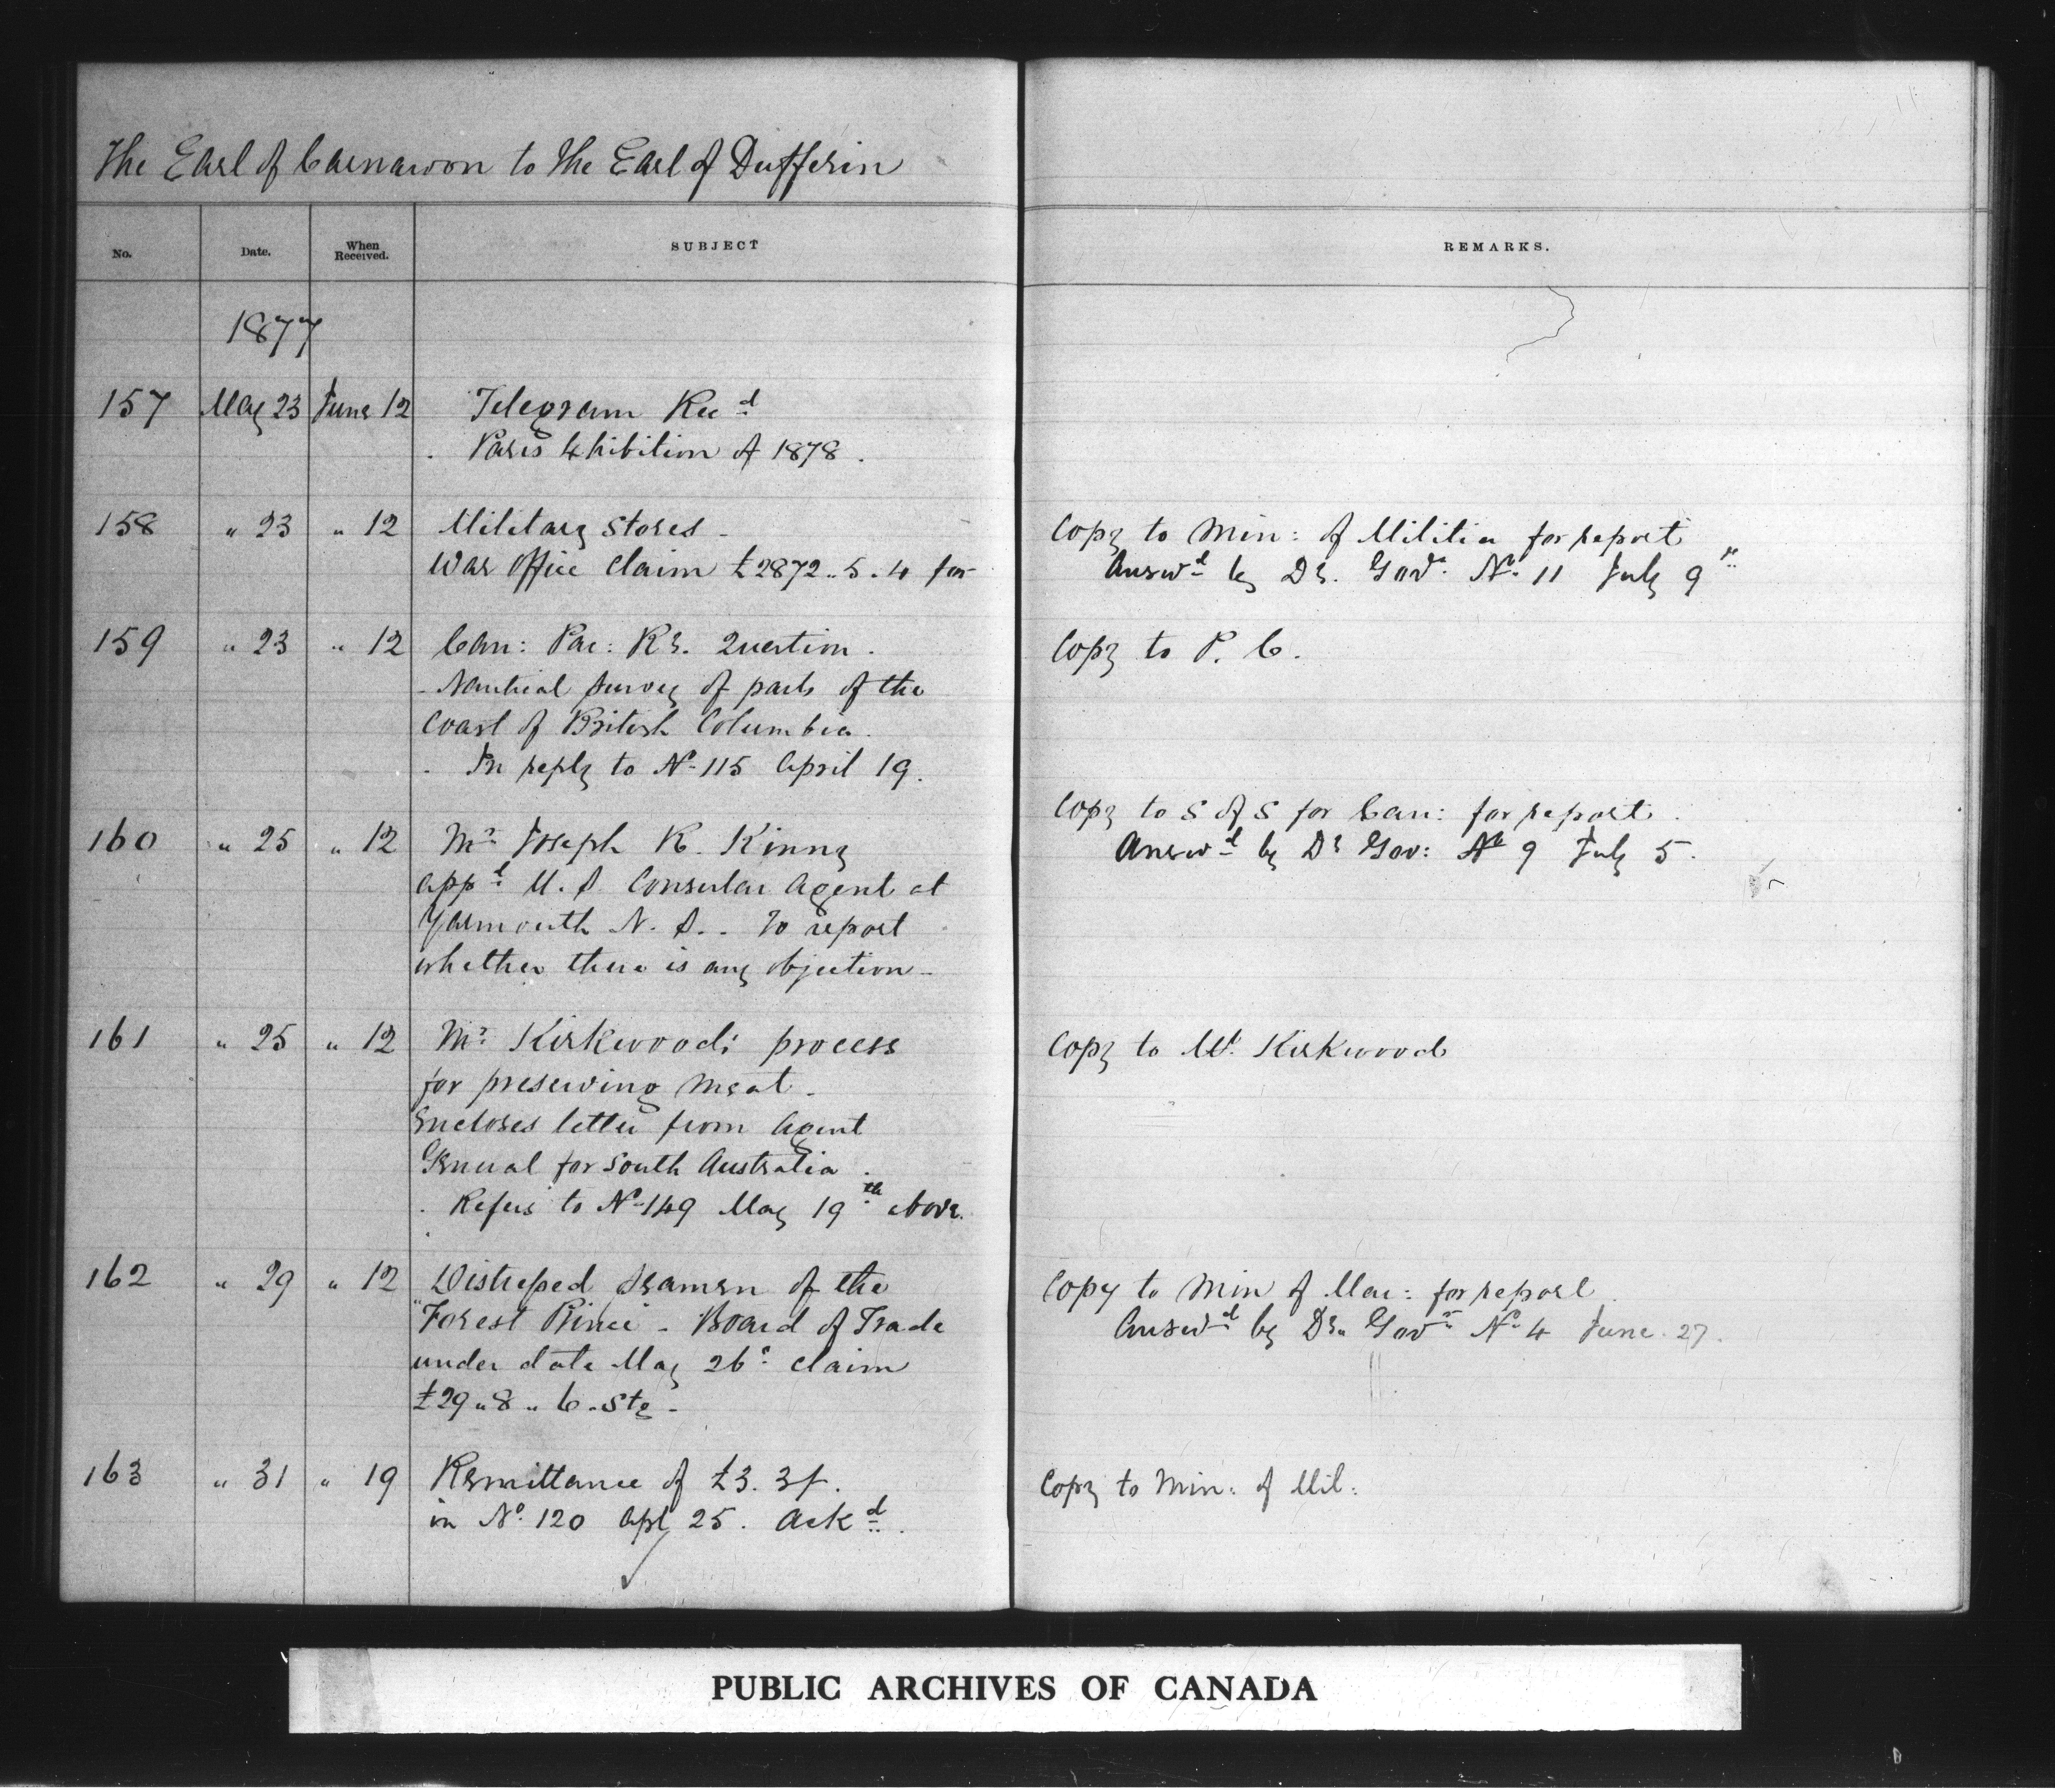 The Earl of Carnarvon to The Earl of Dufferin
No. Date. When Received. SUBJECT REMARKS.
1877
157 May 23 June 12 Telegram Recd
. Paris Exhibition of 1878 .
158 " 23 " 12 Military Stores - Copy to Min: of Militia for report
War Office Claim £2872..5.4 for Answd by Dy. Govr. No. 11 July 9th
159 " 23 " 12 Can: Pac: Ry. Question . Copy to P. C.
- Nautical Survey of parts of the
Coast of British Columbia.
. In reply to No 115 April 19.
Copy to S of S for Can: for report.
160 " 25 " 12 Mr Joseph R. Kinny Answd by Dy Gov: No 9 July 5.
appd U.S. Consular Agent at
Yarmouth N.S. . To report
whether there is any objection -
161 " 25 " 12 Mr. Kirkwood's process Copy to Mr. Kirkwood
for preserving Meat -
Encloses letter from Agent
General for South Australia .
. Refers to No 149 May 19th above.
162 " 29 " 12 Distressed Seamen of the Copy to Min of Mar: for report.
"Forest Prince - Board of Trade Answd by Dy. Govr No. 4 June 27.
under date May 26. Claim
£29..8..6. Stg -
163 " 31 " 19 Remittance of £3. 3/. Copy to Min: of Mil:
in No. 120 Apl 25. Ackd.
PUBLIC ARCHIVES OF CANADA